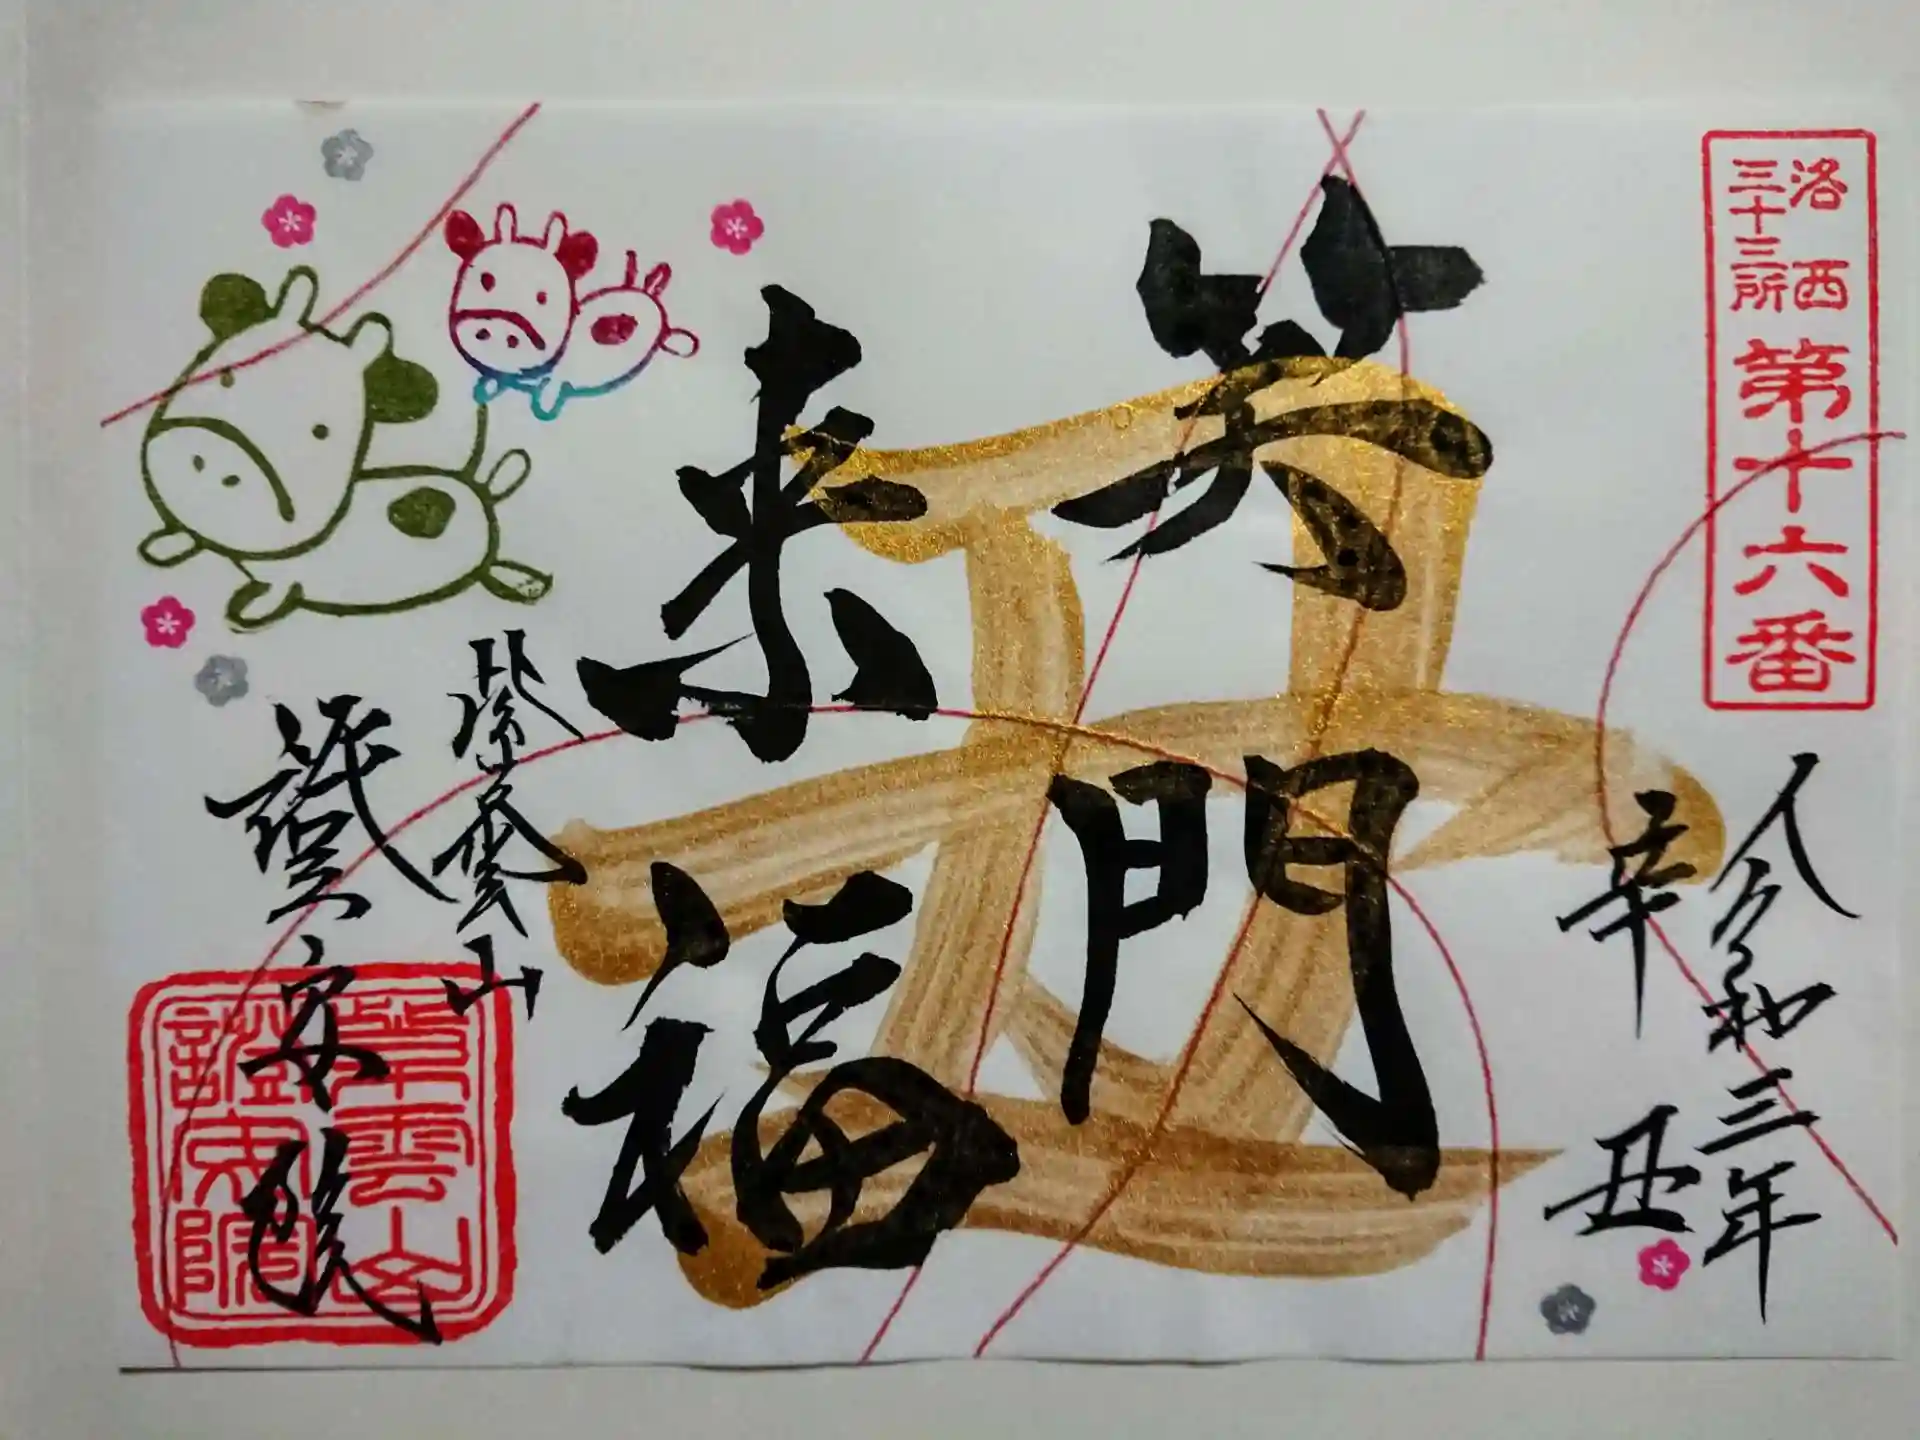 洛西
三十三所
第十六番
令和三年
辛丑
丑
笑門
来福
紫雲山
證安院
紫雲山
證安院